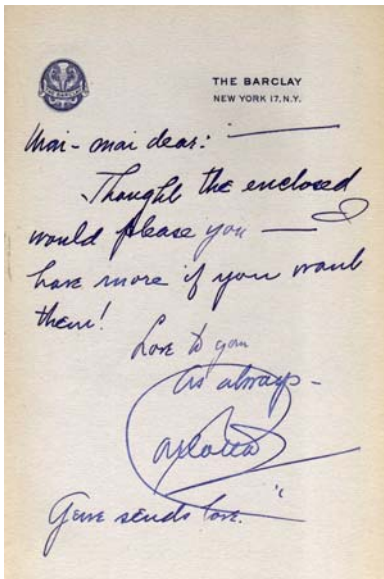 THE BARCLAY
THE BARCLAY
NEW YORK 17, N.Y.
Mai-mai dear: —
Thought the enclosed
would please you — I
have more if you want
them!
Love to you
As always –
Carlotta
Gene sends love.